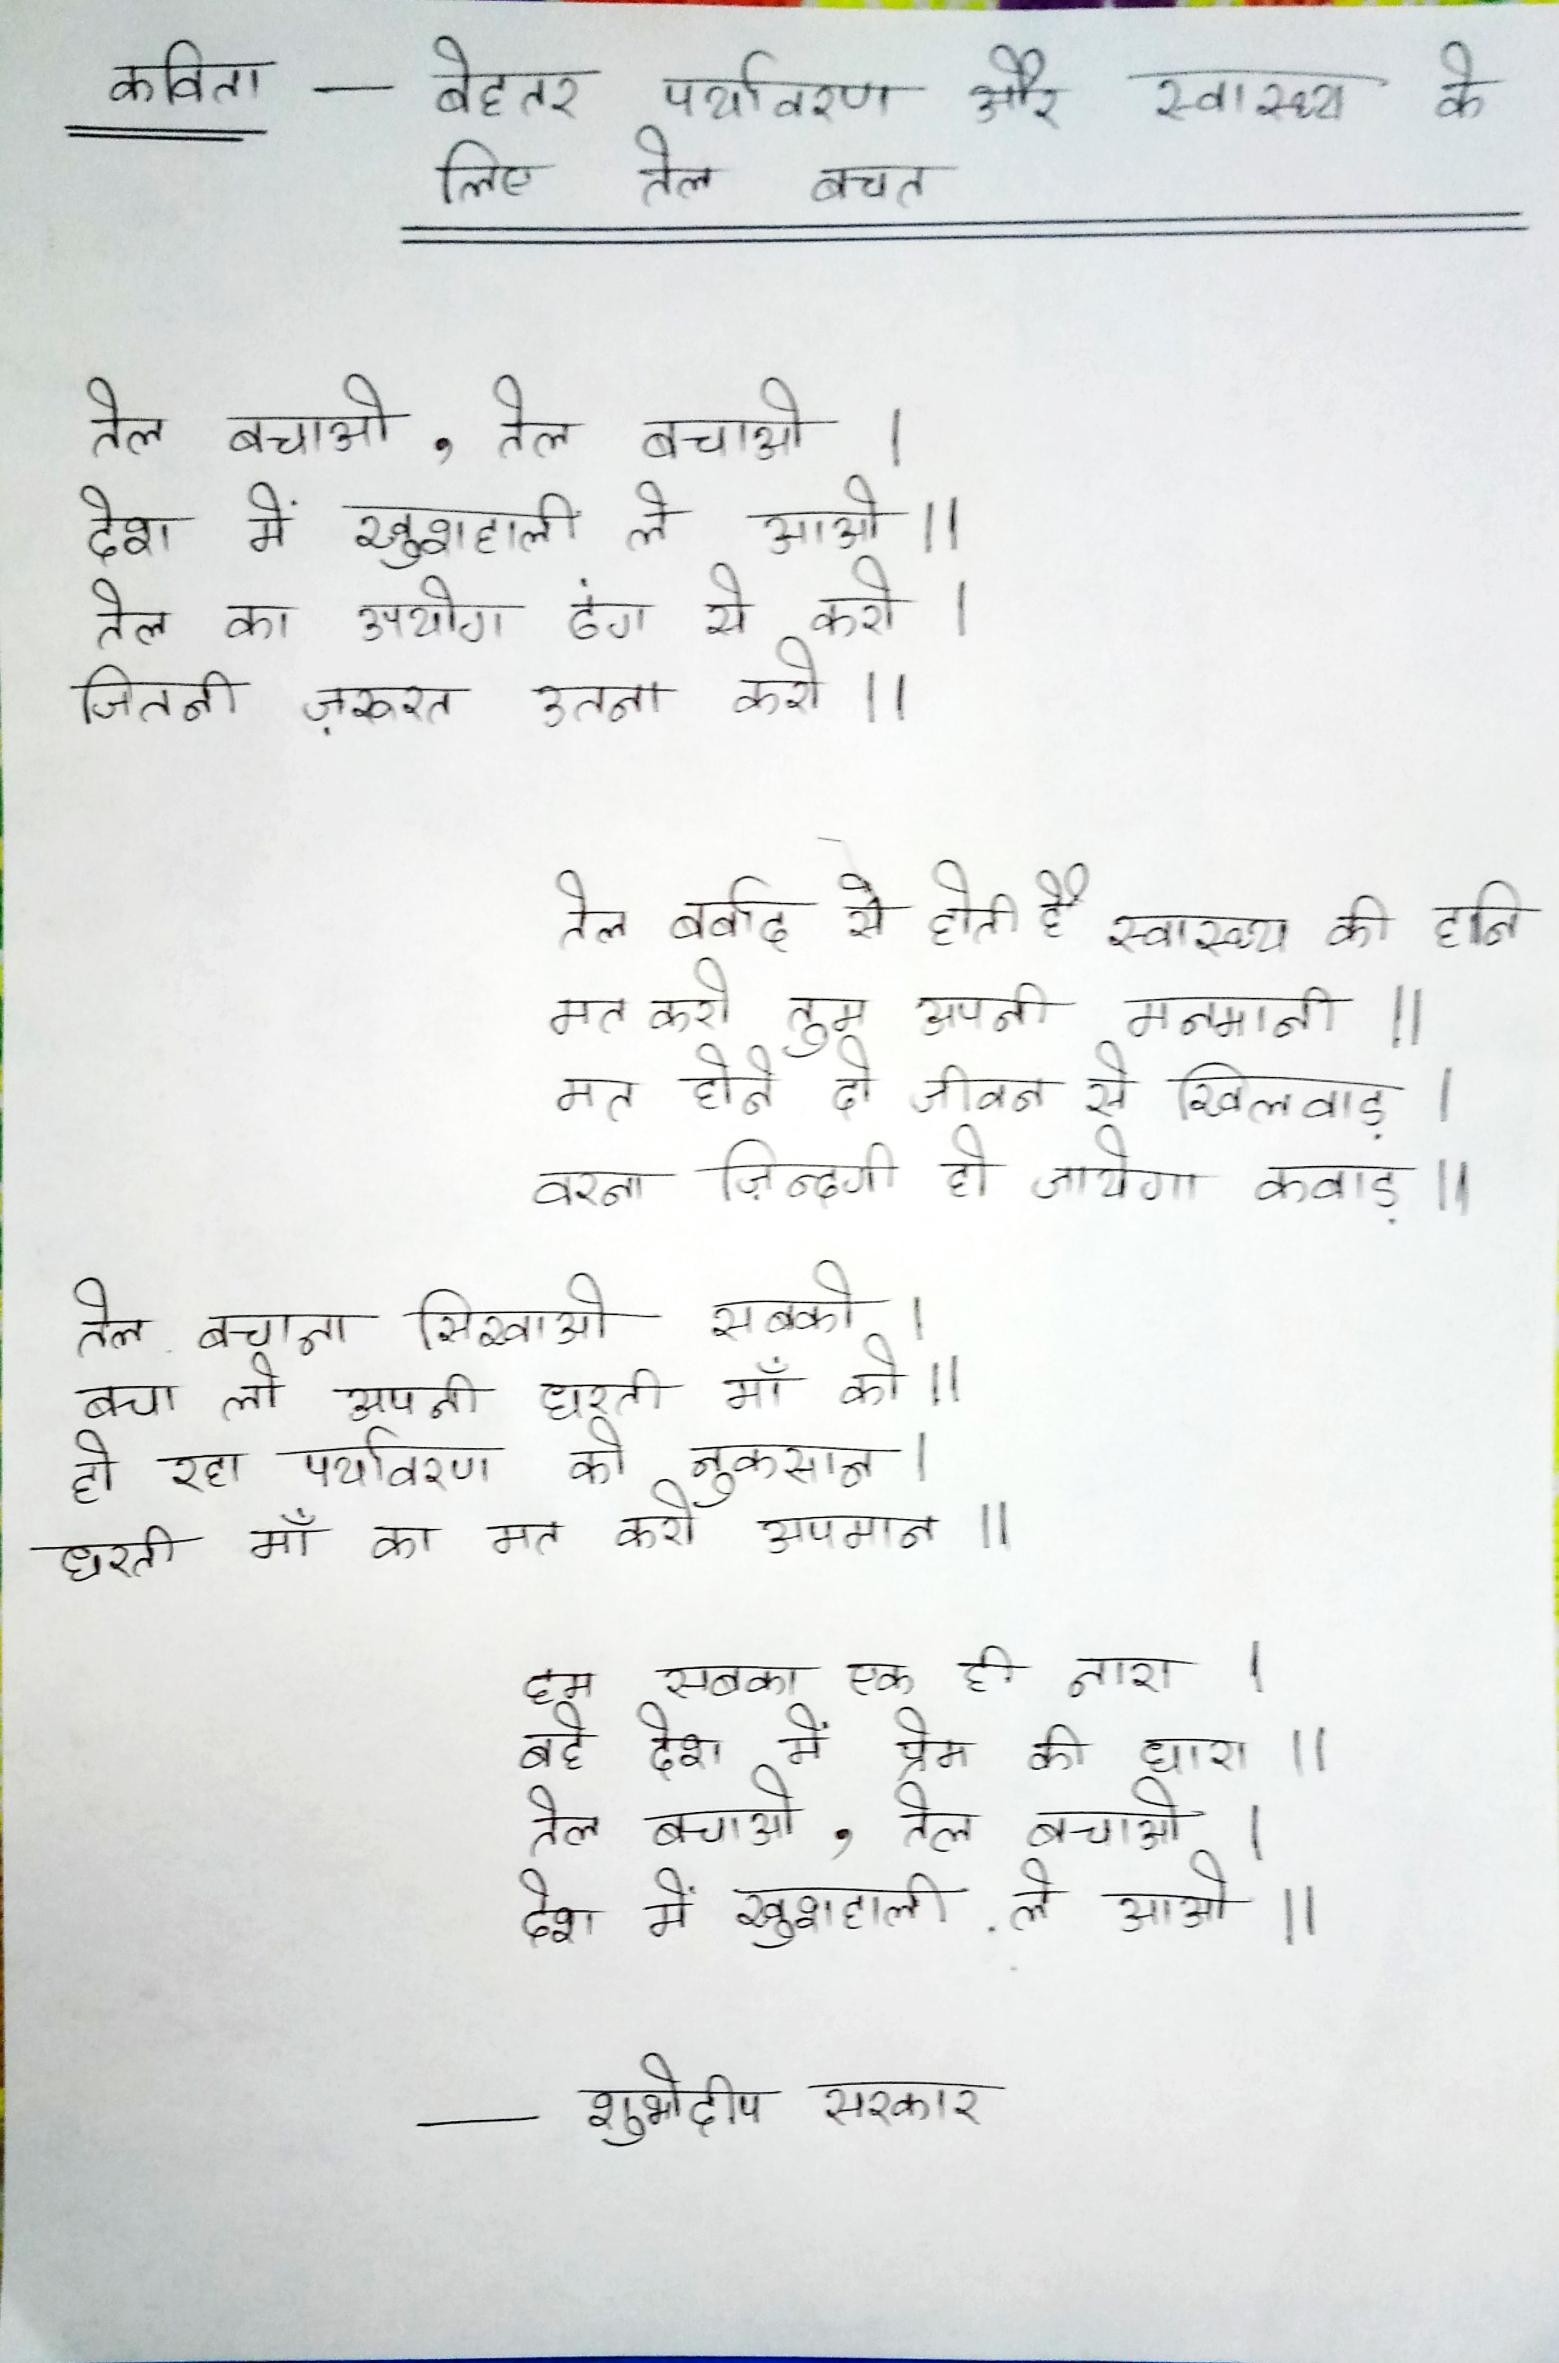 कविता — बेहतर पर्यावरण और स्वास्थ्य के
लिए तेल बचत
तेल बचाओ , तेल बचाओ ।
देश में खुशहाली ले आओ ॥
तेल का उपयोग ढंग से करो ।
जितनी ज़रूरत उतना करो ॥
तेल बर्बाद से होती है स्वास्थ्य की हानि
मत करो तुम अपनी मनमानी ॥
मत होने दो जीवन से खिलवाड़ ।
वरना ज़िन्दगी हो जायेगा कबाड़ ॥
तेल बचाना सिखाओ सबको ।
बचा लो अपनी धरती माँ को ॥
हो रहा पर्यावरण को नुकसान ।
धरती माँ का मत करो अपमान ॥
हम सबका एक ही नारा ।
बहे देश में प्रेम की धारा ॥
तेल बचाओ , तेल बचाओ ।
देश में खुशहाली ले आओ ॥
— शुभोदीप सरकार